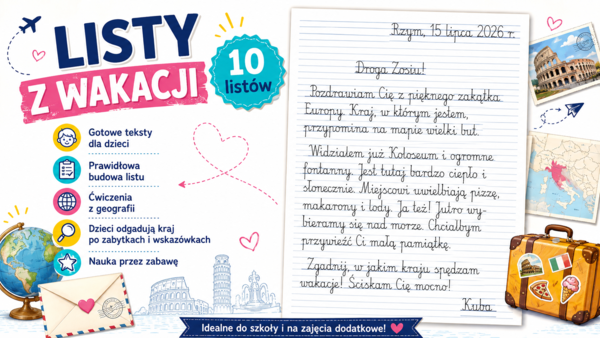 LISTY
Z WAKACJI
10
listów
Gotowe teksty
dla dzieci
Prawidłowa
budowa listu
Ćwiczenia
z geografii
Dzieci odgadują kraj
po zabytkach i wskazówkach
Nauka przez zabawę
Rzym, 15 lipca 2026 r.
Droga Zosiu!
Pozdrawiam Cię z pięknego zakątka
Europy. Kraj, w którym jestem,
przypomina na mapie wielki but.
Widziałem już Koloseum i ogromne
fontanny. Jest tutaj bardzo ciepło i
słonecznie. Miejscowi uwielbiają pizzę,
makarony i lody. Ja też! Jutro wy-
bieramy się nad morze. Chciałbym
przywieźć Ci małą pamiątkę.
Zgadnij, w jakim kraju spędzam
wakacje! Ściskam Cię mocno!
Kuba
Idealne do szkoły i na zajęcia dodatkowe!